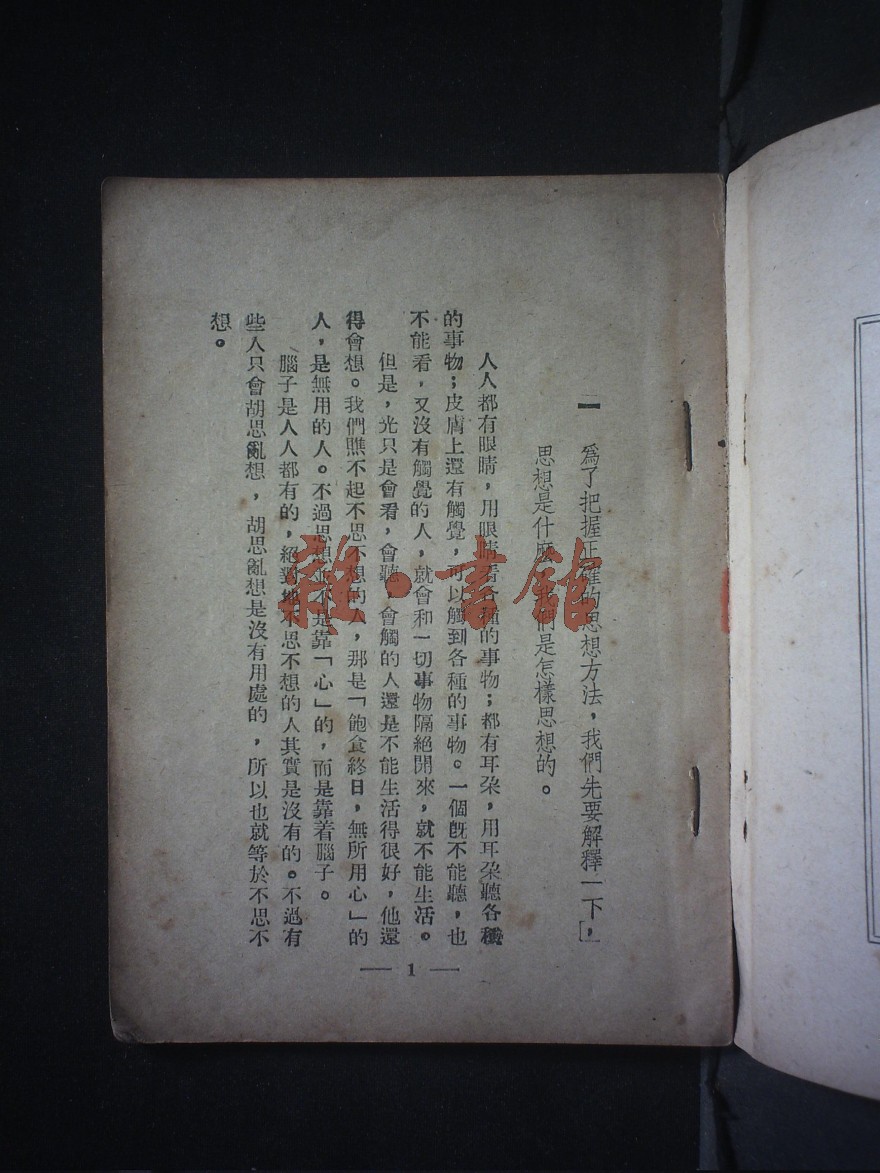 一 爲了把握正確的思想方法，我們先要解釋一下，
思想是什麽，我們是怎樣思想的。
人人都有眼睛，用眼睛看各種的事物；都有耳朶，用耳朶聽各種
的事物；皮膚上還有觸覺，可以觸到各種的事物。一個旣不能聽，也
不能看，又沒有觸覺的人，就會和一切事物隔絕開來，就不能生活。
但是，光只是會看，會聽，會觸的人還是不能生活得很好，他還
得會想。我們瞧不起不思不想的人，那是「飽食終日，無所用心」的
人，是無用的人。不過思想並不是靠「心」的，而是靠着腦子。
腦子是人人都有的，絕對地不思不想的人其實是沒有的。不過有
些人只會胡思亂想，胡思亂想是沒有用處的，所以也就等於不思不
想。
— 1 —
雜·書館